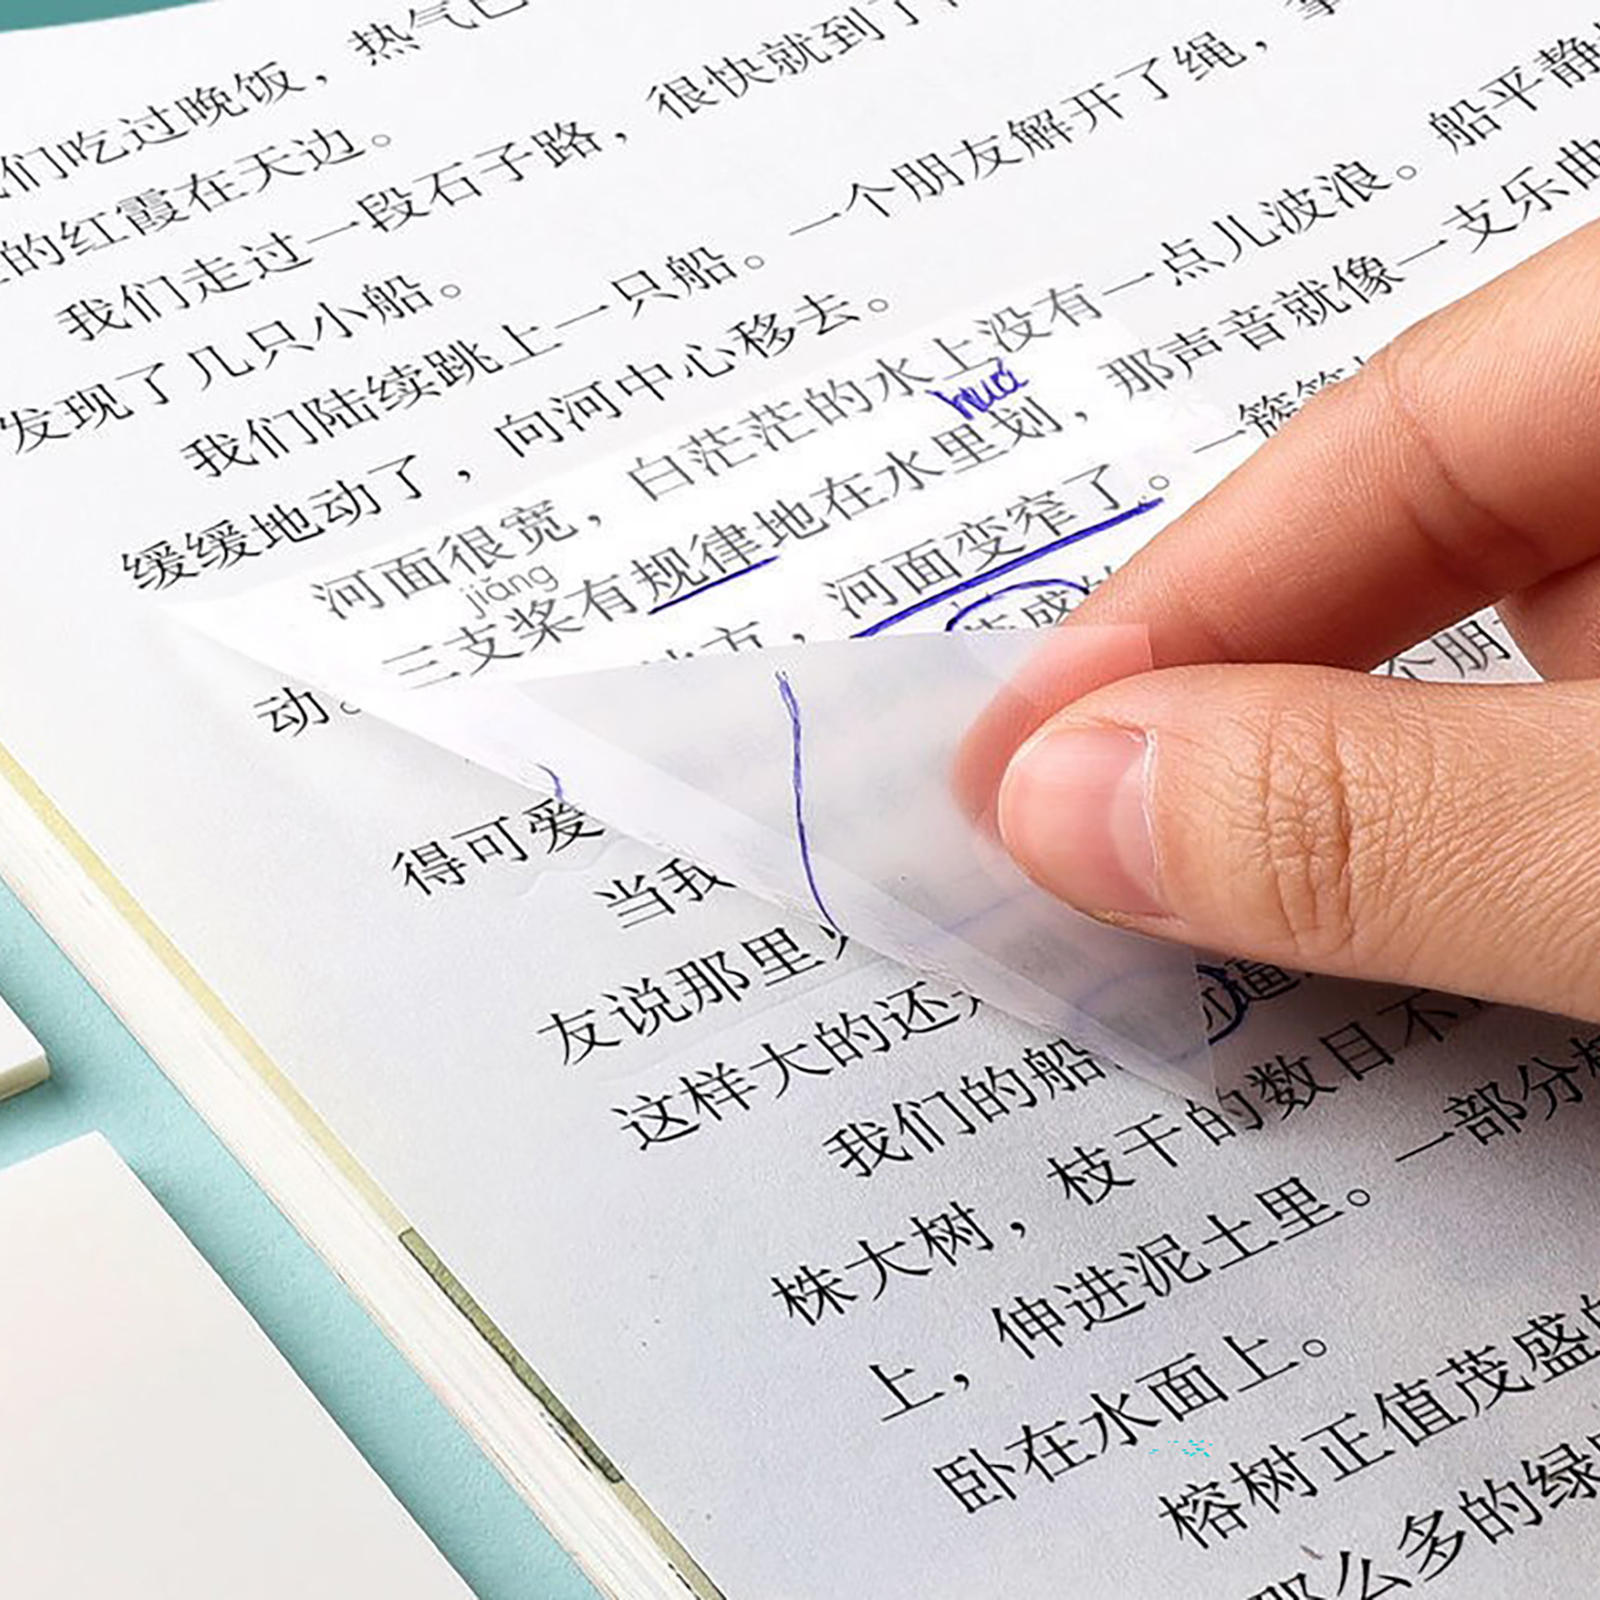 们吃过晚饭，热气
的红霞在天边。
我们走过一段石子路，很快就到了
发现了几只小船。
我们陆续跳上一只船。一个朋友解开了绳，拿
缓缓地动了，向河中心移去。
河面很宽，白茫茫的水上没有一点儿波浪。船平静
huá
jiǎng
三支桨有规律地在水里划，那声音就像一支乐曲
地方，河面变窄了。一簇簇
动。
得可爱
个朋
当我
友说那里
这样大的还
逼
我们的船
株大树，枝干的数目不
上，伸进泥土里。一部分
卧在水面上。
榕树正值茂盛的
那么多的绿